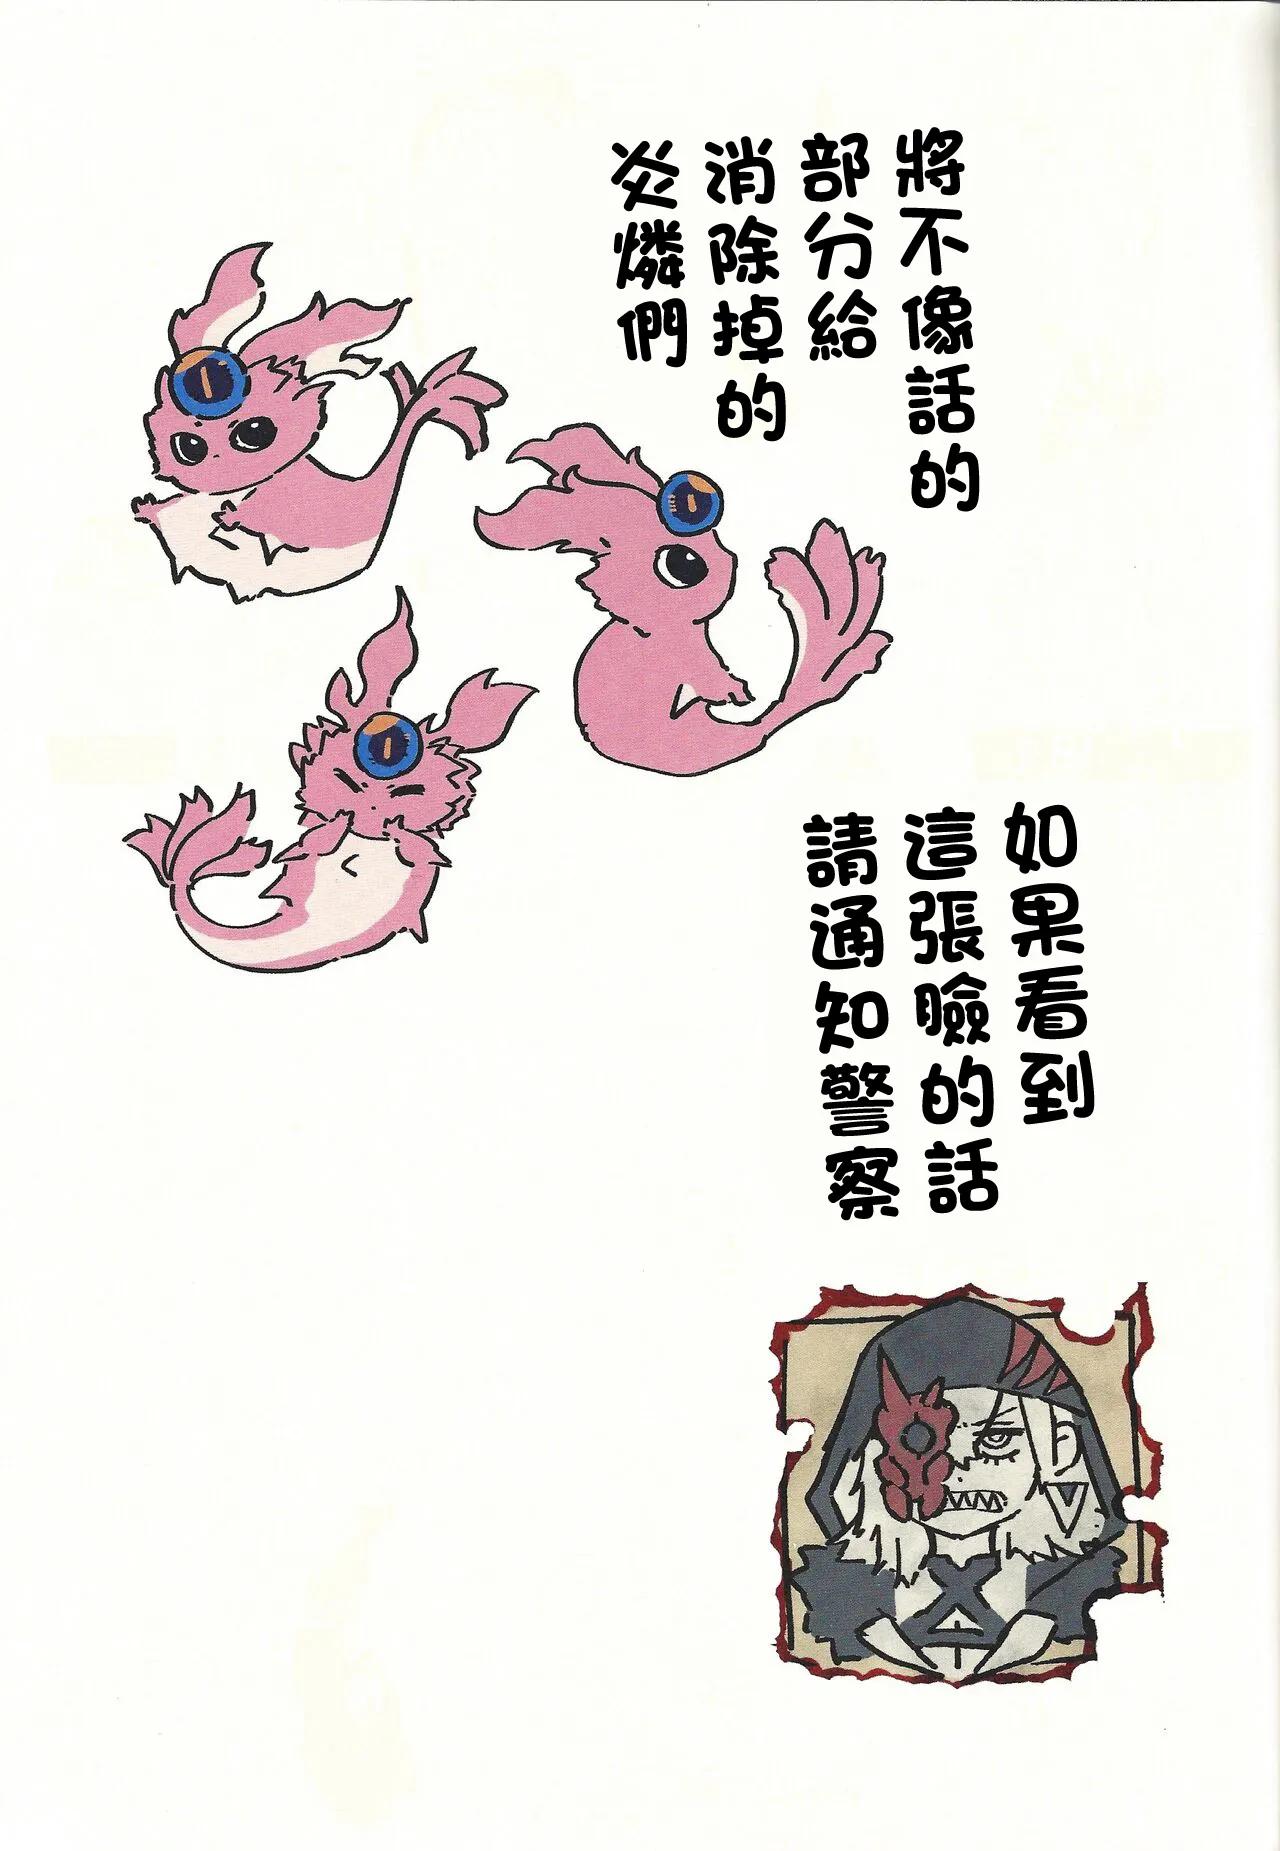 將不像話的
部分給
消除掉的
炎燐們
如果看到
這張臉的話
請通知警察